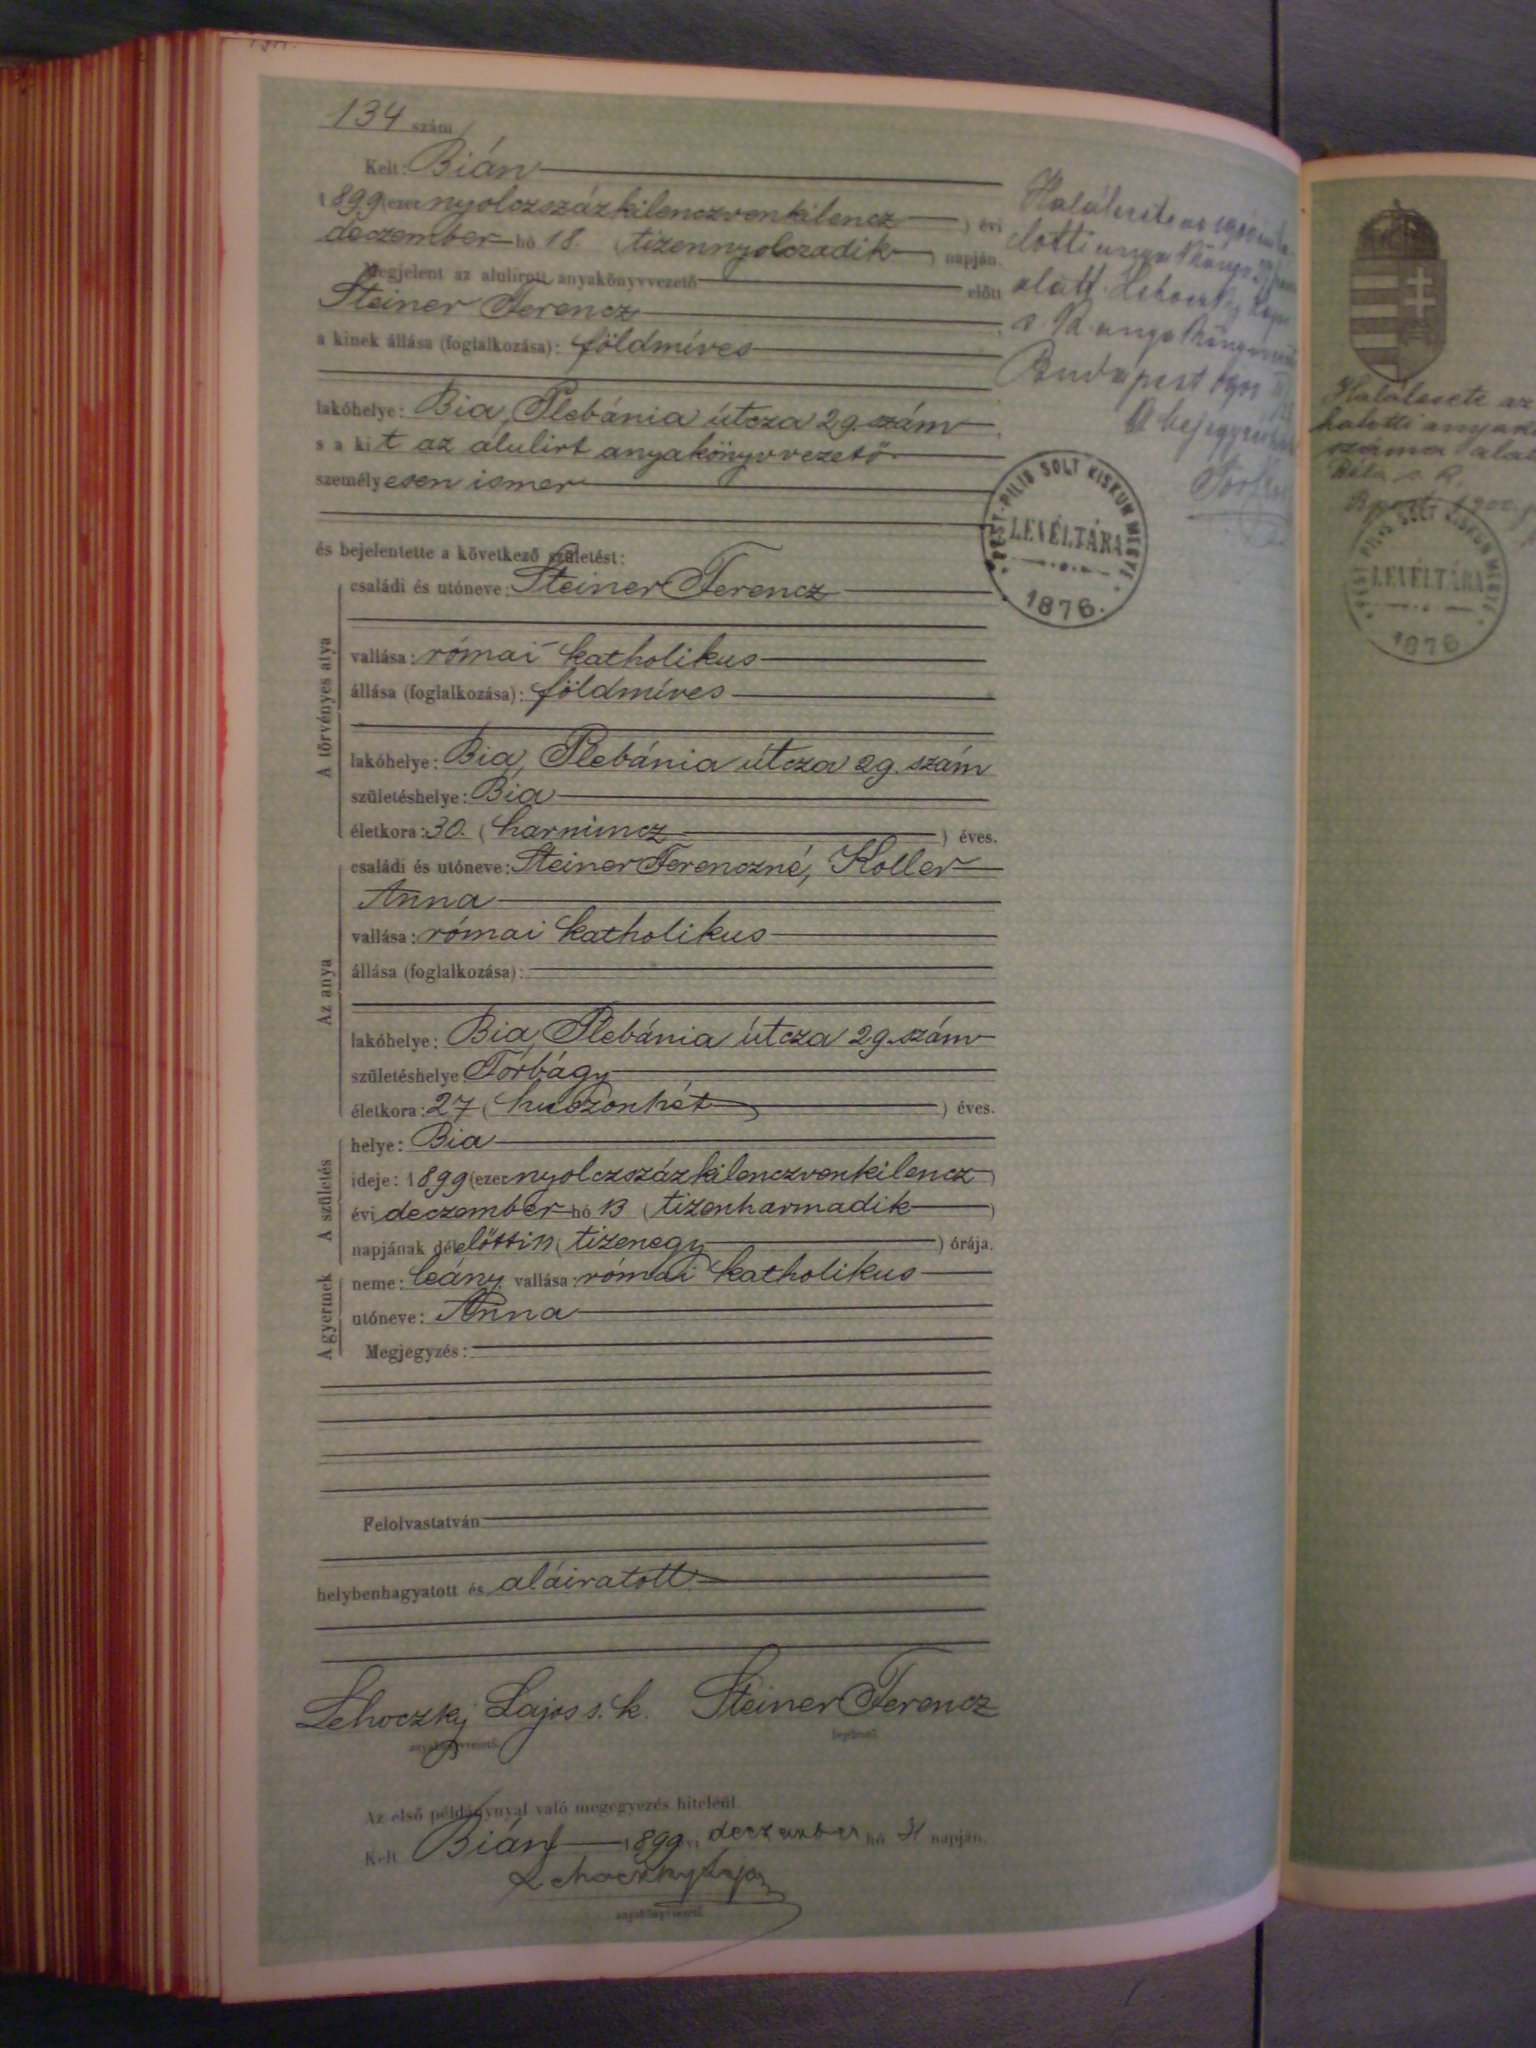 134 szám
Kelt: Bián
1899 (ezer nyolczszázkilenczvenkilencz) évi
deczember hó 18. (tizennyolczadik) napján.
Megjelent az alulírott anyakönyvvezető előtt
Steiner Ferencz
a kinek állása (foglalkozása): földmíves
lakóhelye: Bia, Plebánia útcza 29. szám
s a kit az alulirt anyakönyvvezető
személyesen ismer
és bejelentette a következő születést:
A törvényes atya
családi és utóneve: Steiner Ferencz
vallása: római katholikus
állása (foglalkozása): földmíves
lakóhelye: Bia, Plebánia útcza 29. szám
születéshelye: Bia
életkora: 30. (harmincz) éves.
Az anya
családi és utóneve: Steiner Ferenczné, Koller
Anna
vallása: római katholikus
állása (foglalkozása):
lakóhelye: Bia, Plebánia útcza 29. szám
születéshelye Törbágy
életkora: 27 (huszonhét) éves.
A születés
helye: Bia
ideje: 1899 (ezer nyolczszázkilenczvenkilencz)
évi deczember hó 13 (tizenharmadik)
napjának délelőtti 11 (tizenegy) órája.
A gyermek
neme: leány vallása: római katholikus
utóneve: Anna
Megjegyzés:
Felolvastatván
helybenhagyatott és aláiratott.
Lehoczky Lajos s. k. Steiner Ferencz
anyakönyvvezető. bejelentő.
Az első példánynyal való megegyezés hiteléül.
Kelt Bián 1899 évi deczember hó 31 napján.
Lehoczky Lajos
anyakönyvvezető.
Halálesete az
lotti anyakönyv
alatt. Lehoczky Lajos
s. k. anyakönyvvezető
Budapest
A bejegyzés
PEST-PILIS SOLT KISKUN MEGYE
LEVÉLTÁRA
1876.
Halálesete az
halotti anyakö
száma alat
Béla s. k.
Bpest 1900.
PILIS SOLT KISKUN MEGYE
LEVÉLTÁRA
1876